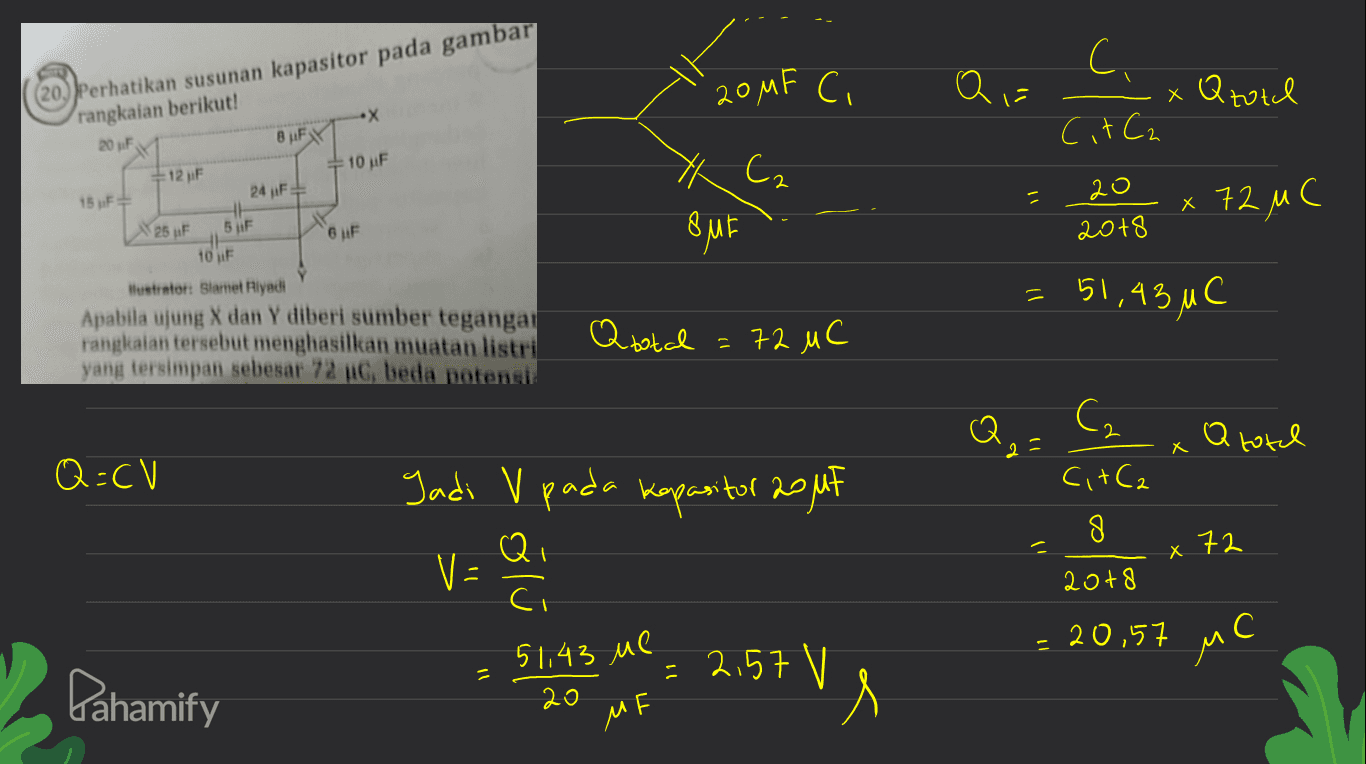 20. Perhatikan susunan kapasitor pada gambar
rangkaian berikut!
X
20 µF
8 µF
10 µF
12 µF
24 µF
15 µF
25 µF
5 µF
6 µF
10 µF
Y
Ilustrator: Slamet Riyadi
Apabila ujung X dan Y diberi sumber tegangan
rangkaian tersebut menghasilkan muatan listri
yang tersimpan sebesar 72 µC, beda potensi
20 µF C1
C2
8 µF
Q total = 72 µC
Q1 = C1 / C1 + C2 x Q total
= 20 / 20+8 x 72 µC
= 51,43 µC
Q2 = C2 / C1 + C2 x Q total
= 8 / 20+8 x 72
= 20,57 µC
Q = CV
Jadi V pada kapasitor 20 µF
V = Q1 / C1
= 51,43 µC / 20 µF = 2,57 V
Pahamify